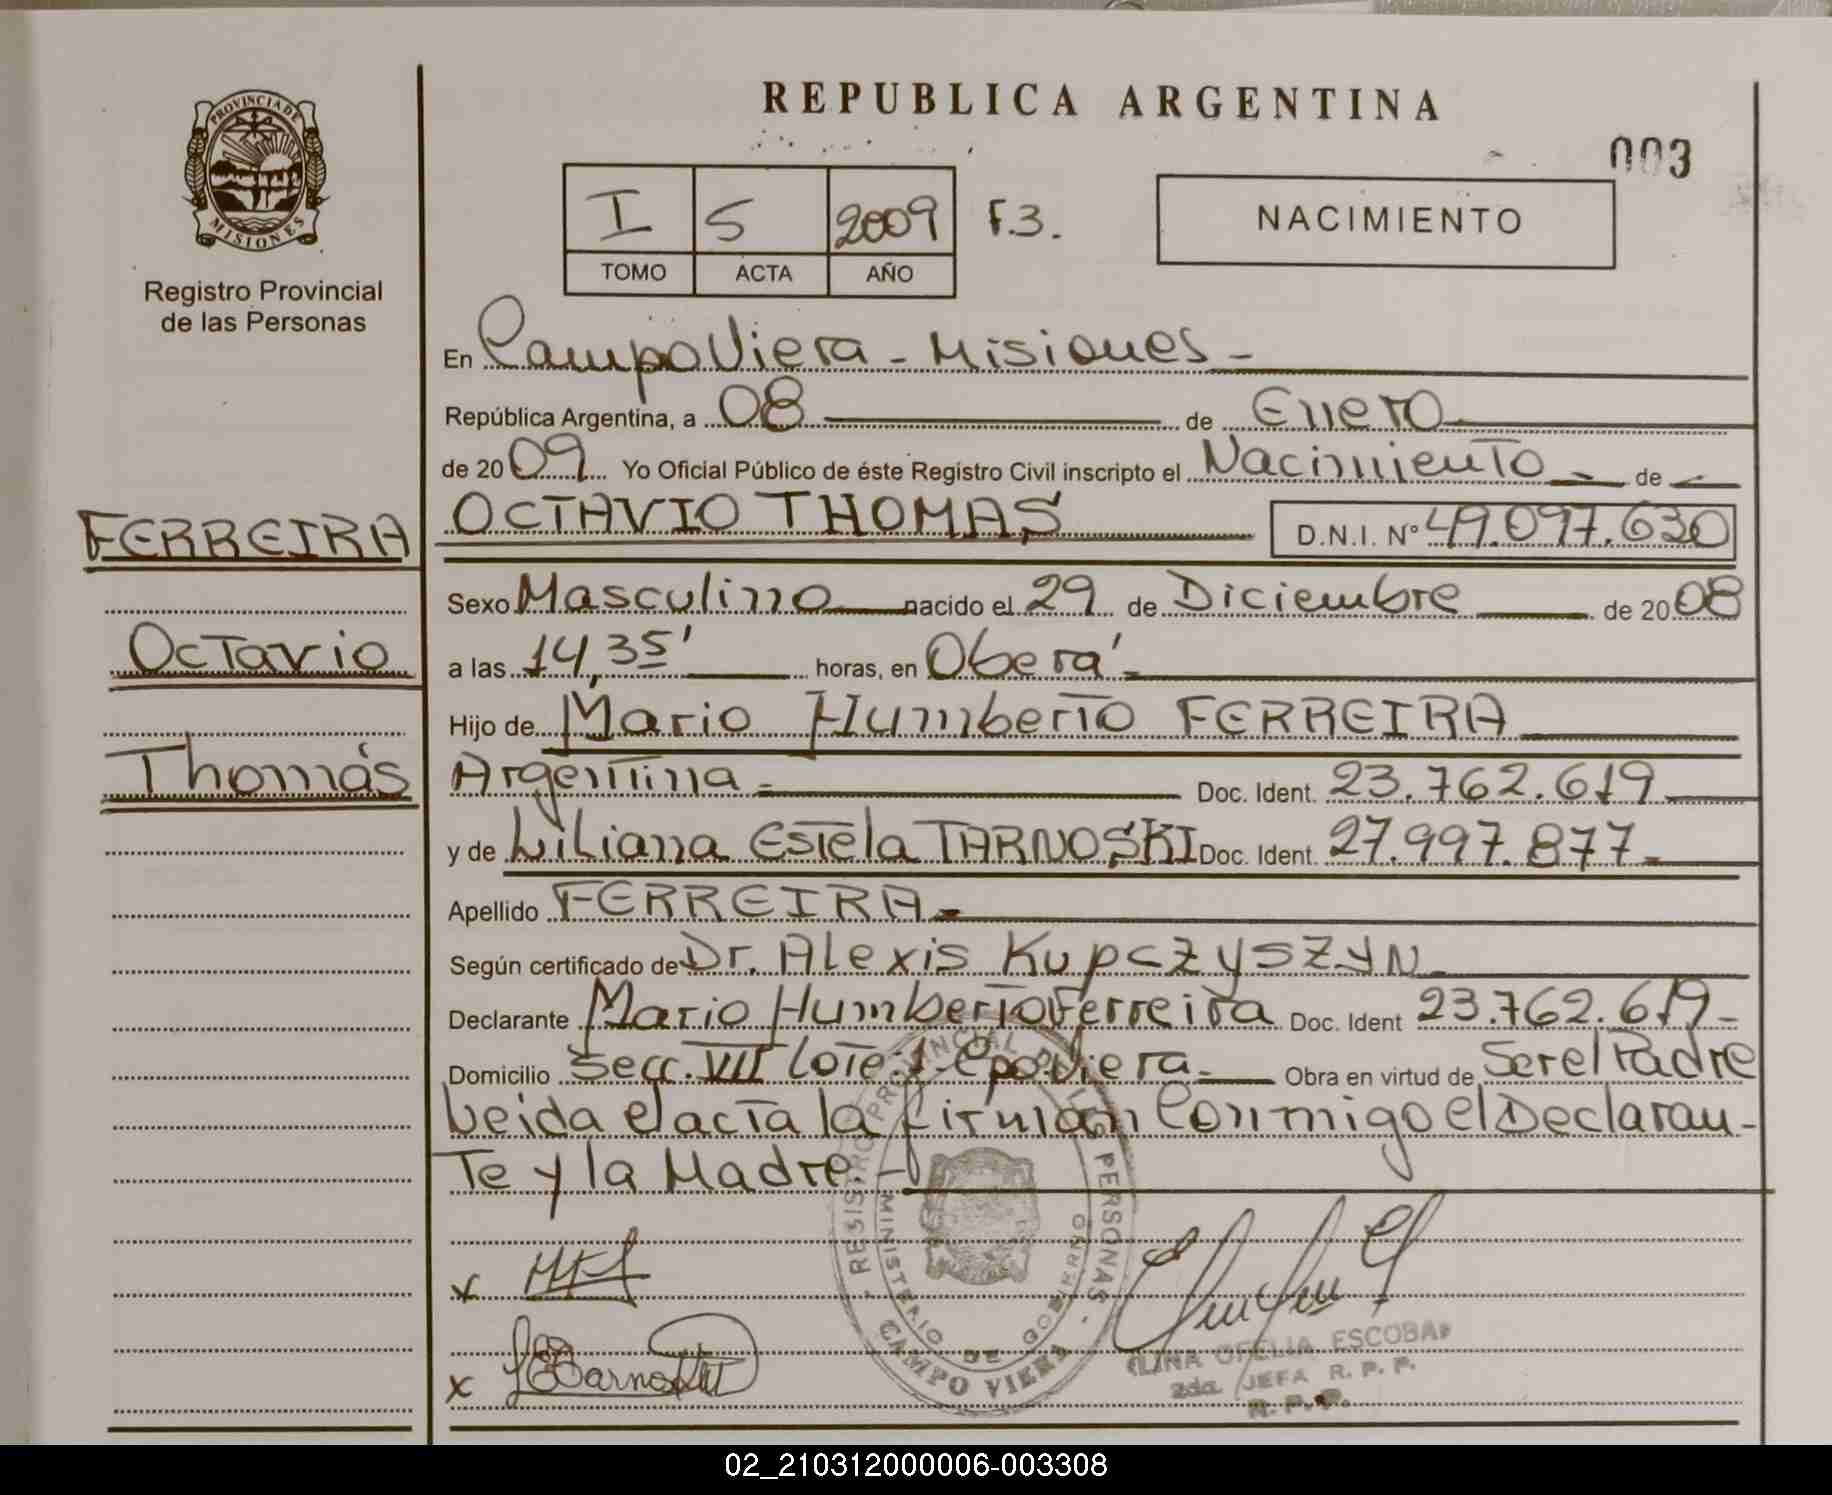 REPUBLICA ARGENTINA
003
PROVINCIA DE
MISIONES
Registro Provincial
de las Personas
I 5 2009 F.3.
TOMO ACTA AÑO
NACIMIENTO
En Campo Viera - Misiones -
República Argentina, a 08 de Enero
de 2009 Yo Oficial Público de éste Registro Civil inscripto el Nacimiento - de -
FERREIRA
OCTAVIO THOMAS D.N.I. Nº 49.097.630
Sexo Masculino nacido el 29 de Diciembre de 2008
Octavio
a las 14,35' horas, en Oberá -
Hijo de Mario Humberto FERREIRA
Thomás
Argentina - Doc. Ident. 23.762.619
y de Liliana Estela TARNOSKI Doc. Ident. 27.997.877 -
Apellido FERREIRA -
Según certificado de Dr. Alexis Kupczyszyn
Declarante Mario Humberto Ferreira Doc. Ident 23.762.619 -
Domicilio Secc. VII Lote: 1 - Cpo. Viera - Obra en virtud de Ser el Padre
Leida el acta la firman Conmigo el Declaran-
Te y la Madre. -
REGISTRO PROVINCIAL DE LAS PERSONAS
MINISTERIO DE GOBIERNO
CAMPO VIERA
x
x
OFELIA ESCOBAR
2da JEFA R. P. P.
R. P. P.
02_210312000006-003308